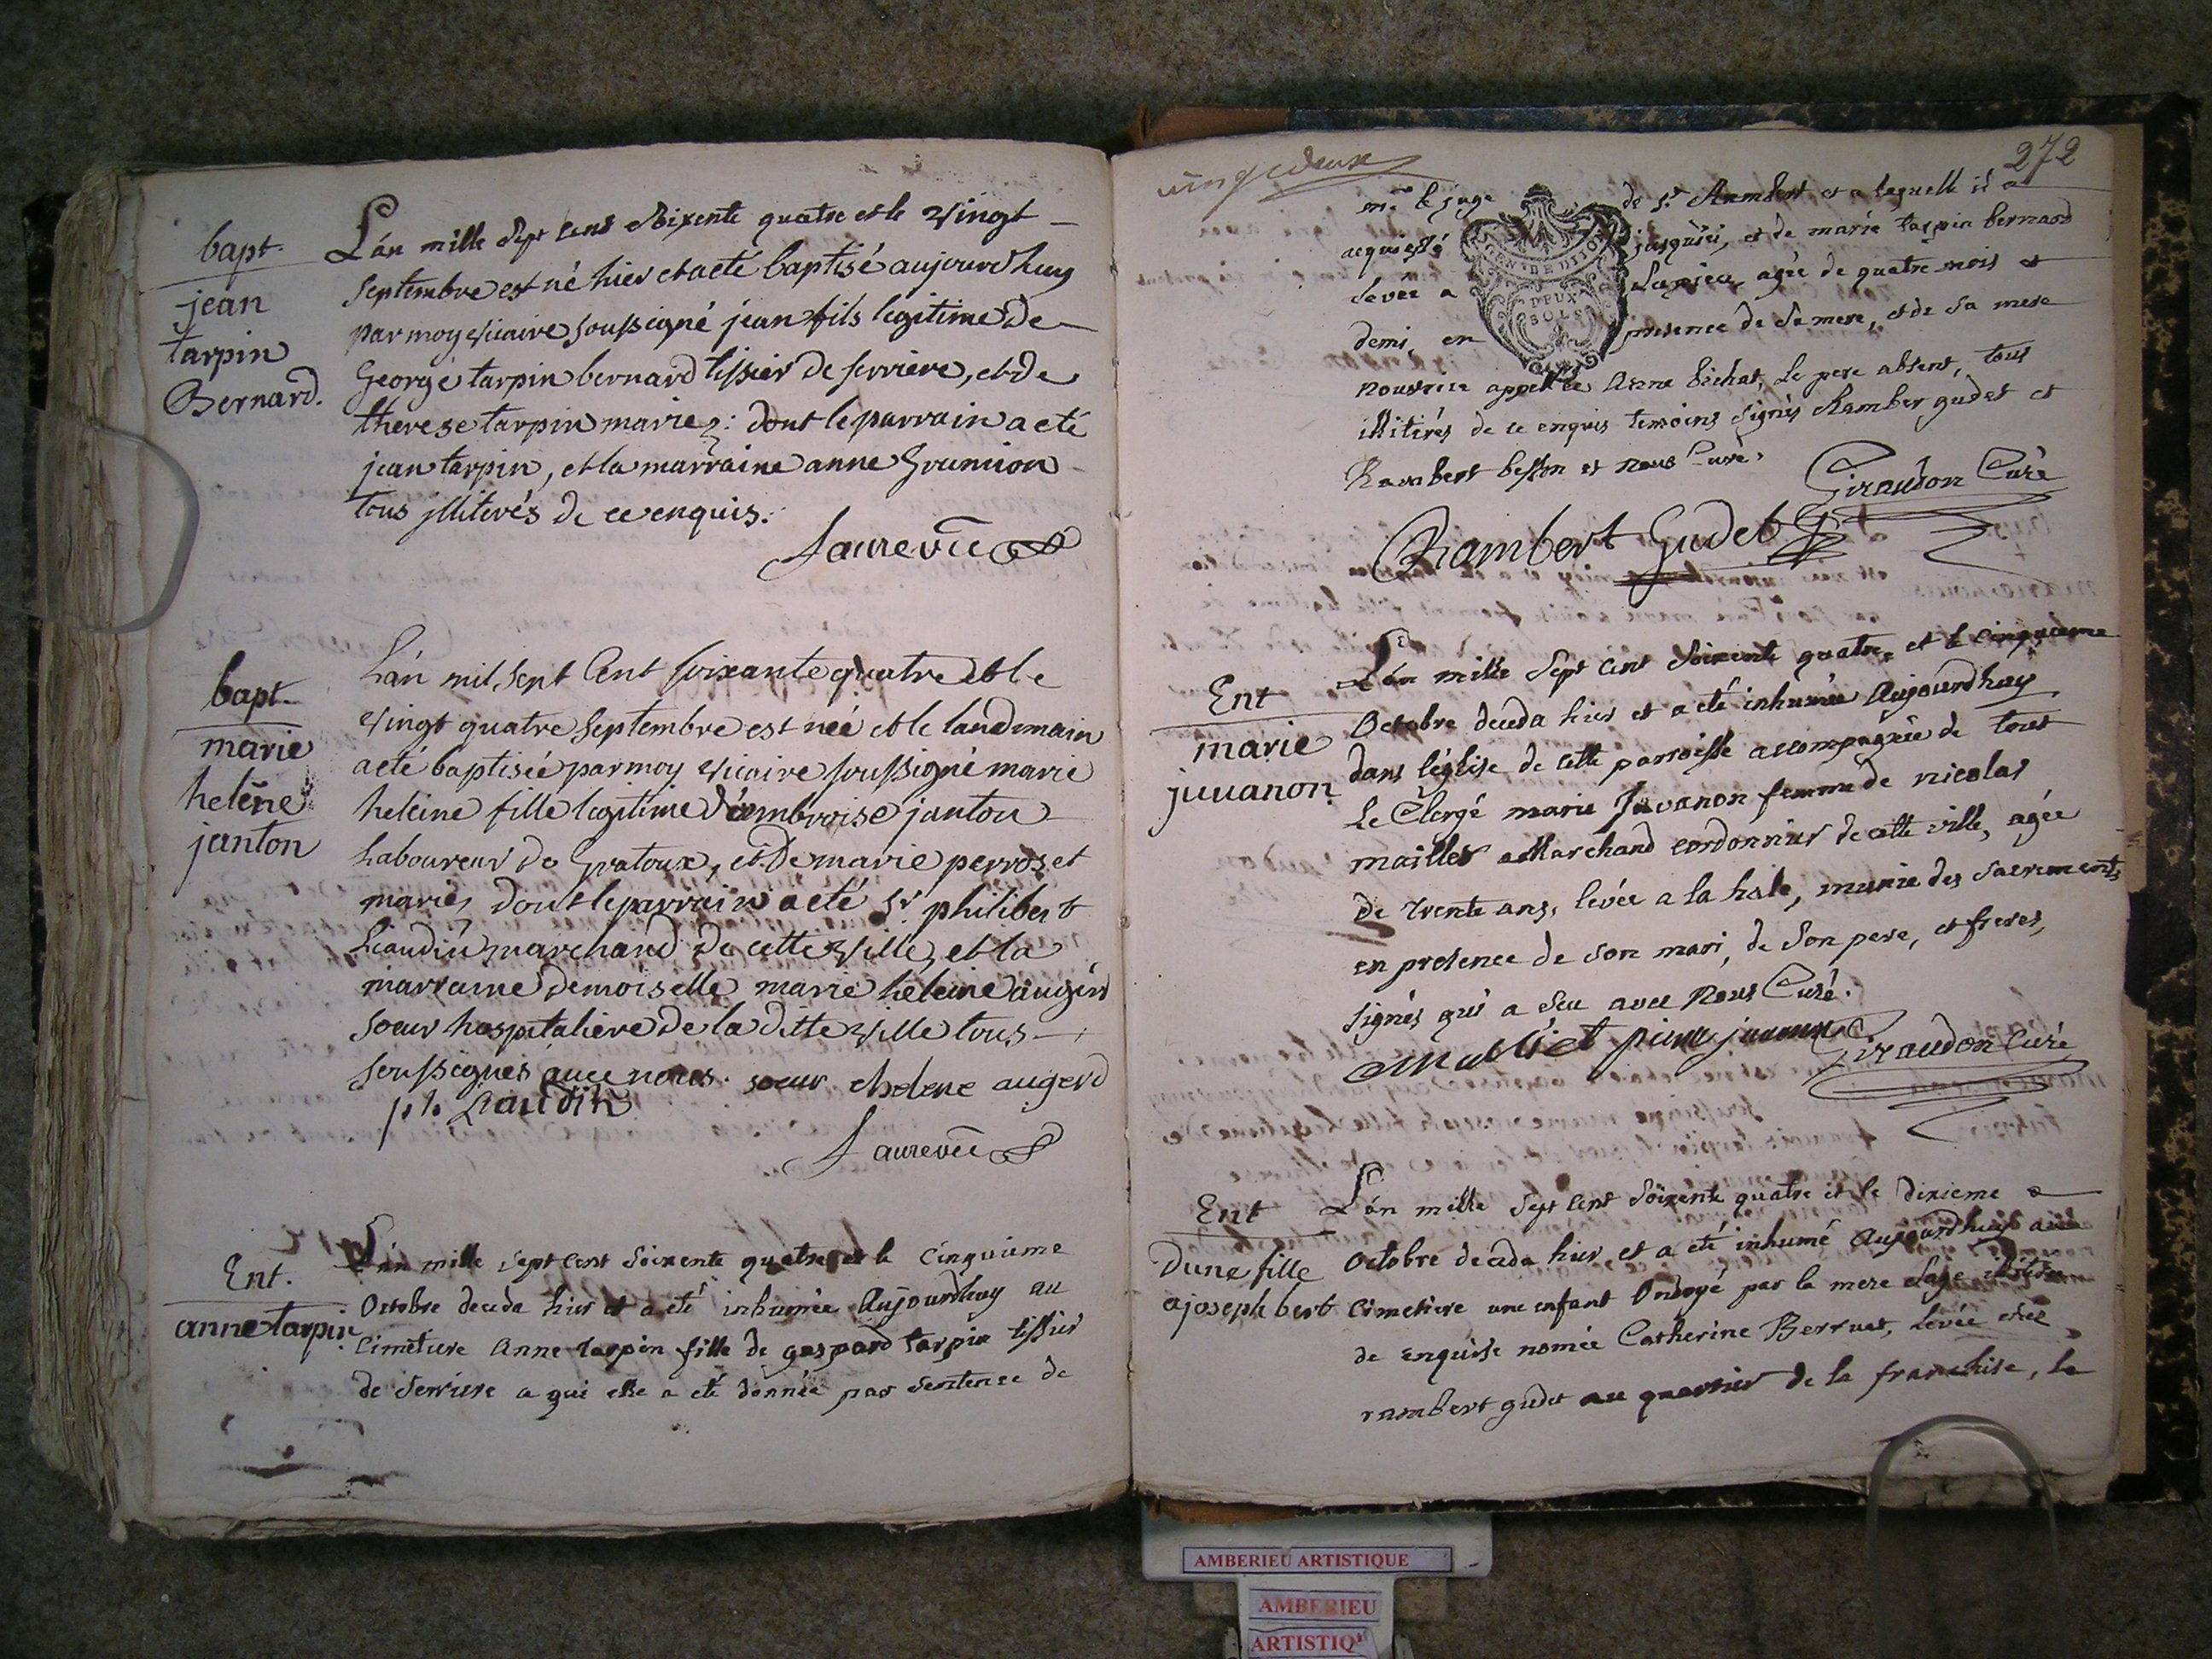 bapt.
jean
tarpin
Bernard.
L'an mille sept cens soixente quatre et le vingt
septembre est né hier et a eté baptisé aujourdhuy
par moy vicaire soussigné jean fils legitime de
George tarpin bernard tissier de serriere, et de
therese tarpin mariez: dont le parrain a eté
jean tarpin, et la marraine anne Grumion
tous jlliterés de ce enquis.
Laure vic
bapt.
marie
helene
janton
L'an mil sept Cent soixante quatre et le
vingt quatre septembre est née et le landemain
a eté baptisée par moy vicaire soussigné marie
heleine fille legitime d'ambroise janton
Laboureur de Gratoux, et de marie perroset
mariés, dont le parrain a eté Sr philibert
Liaudin marchand de cette ville, et la
marraine demoiselle marie heleine augerd
soeur hospitaliere de la ditte ville tous
soussignés avec nous. soeur helene augerd
ph. Liaudin
Laure vic
Ent.
anne tarpin.
L'an mille sept cent soixente quatre et le cinquieme
Octobre deceda hier et a eté inhumée Aujourdhuy au
Cimetiere Anne tarpin fille de gaspard tarpin tissier
de serriere a qui elle a eté donnée par sentence de
vingtdeux
272
mr. le juge de st. Rambert et a laquelle il a
acquiessé jusqu'ici, et de marie tarpin bernard
levée a agée de quatre mois et
demi, en presence de sa mere, et de sa mere
nourrice appellée Anne bichat, Le pere absent, tous
illiterés de ce enquis temoins signés Rambert gudet et
Rambert besson et nous Curé.
GEN. DE DIJON
DEUX
SOLS
Giraudon Curé
Rambert Gudet
Ent
marie
juuanon.
L'an mille sept cent soixente quatre et le cinquieme
Octobre deceda hier et a eté inhumée Aujourdhuy
dans l'église de cette parroisse accompagnée de tout
Le Clergé marie Juvanon femme de nicolas
maillet Marchand cordonnier de cette ville, agée
de trente ans, levée a la hale, munie des sacrements
en presence de son mari, de son pere, et freres,
signés qui a seu avec Nous Curé.
Maillet
Giraudon Curé
Ent
Dune fille
a joseph bert
L'an mille sept cent soixente quatre et le dixieme
Octobre deceda hier et a eté inhumé Aujourdhuy au
Cimetiere une enfant Ondoyé par la mere sage
de enquise nomée Catherine Berruet, levée chez
rambert gudet au quartier de la franchise, la
AMBERIEU ARTISTIQUE
AMBERIEU
ARTISTIQ